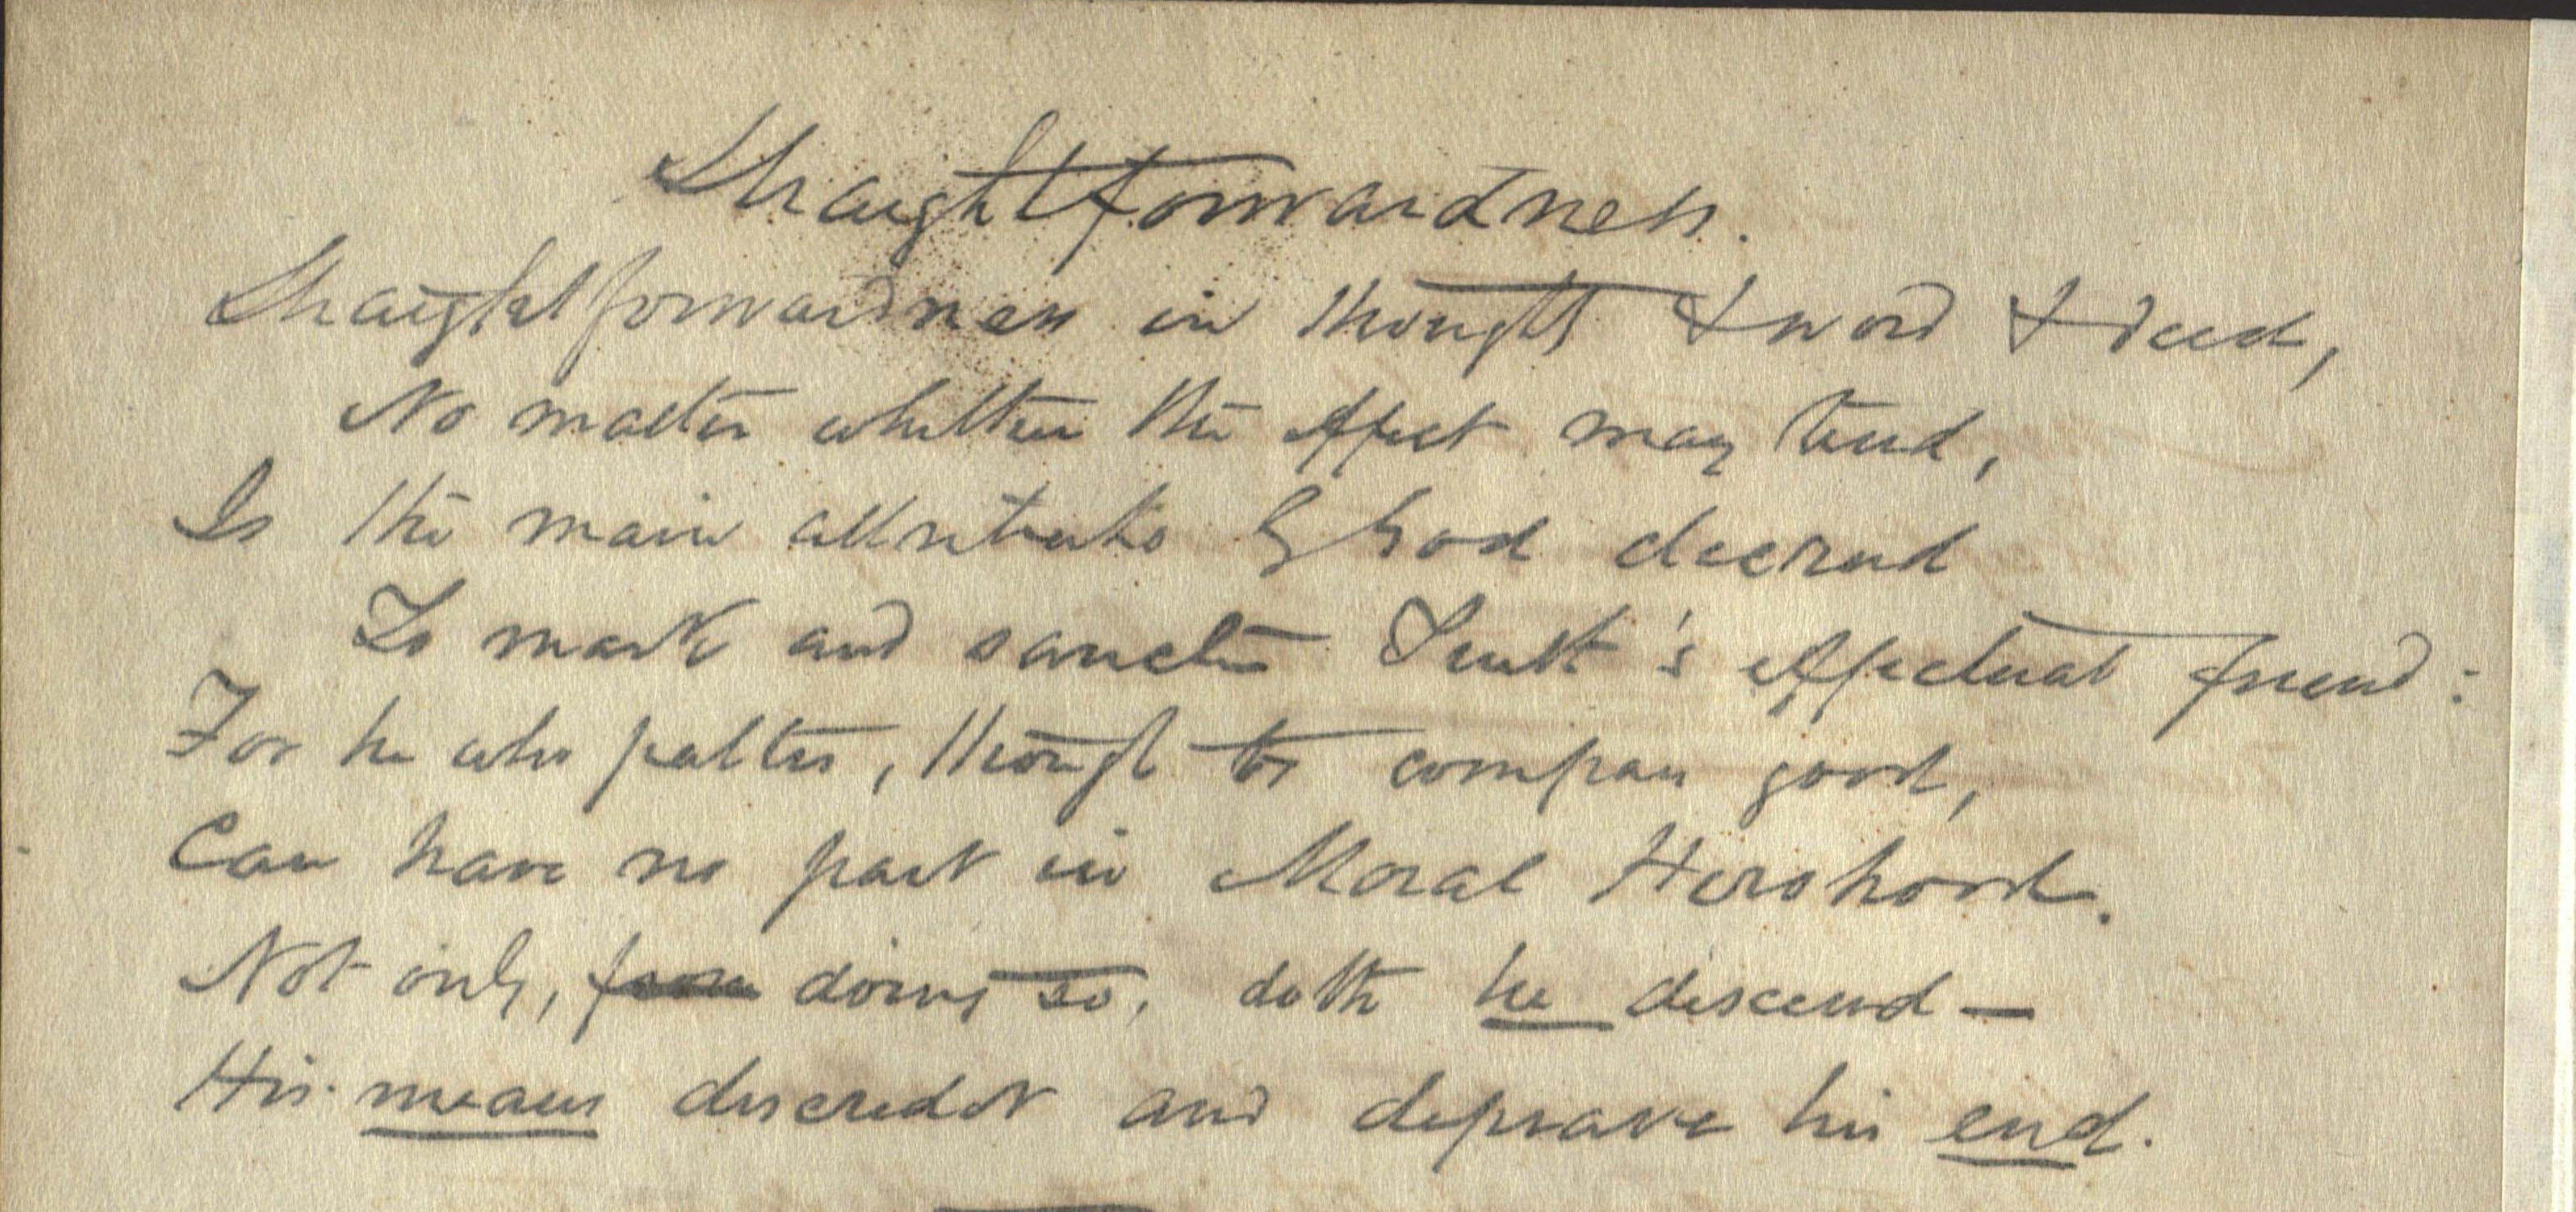 Straightforwardness.
Straightforwardness in thought & word & deed,
No matter whither the effect may tend,
Is the main attribute by God decreed
To mark and sanction Truth's effectual friend:
For he who palters, though to compass good,
Can have no part in Moral Herohood.
Not only, doing so, doth he descend —
His means discredit and deprave his end.